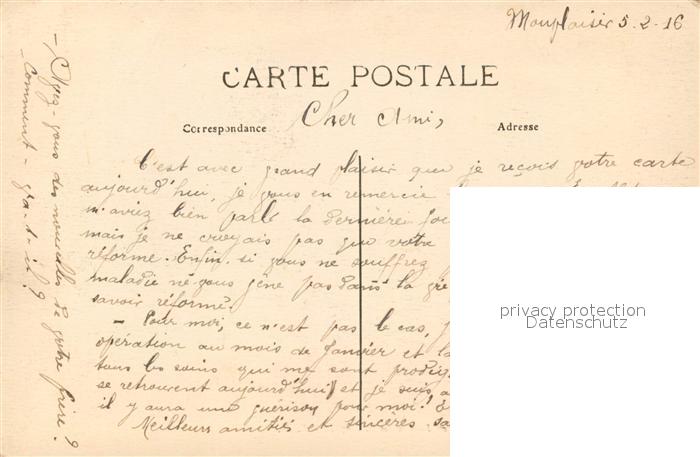 Monplaisir 5-2-16
CARTE POSTALE
Cher Ami,
Correspondance
Adresse
C'est avec grand plaisir que je reçois votre carte
aujourd'hui, je vous en remercie
m'aviez bien parlé la dernière
mais je ne croyais pas que votre
réforme. Enfin si vous ne souffrez
maladie ne vous gêne pas dans la
savoir réformé.
- Pour moi, ce n'est pas le cas,
opération au mois de Janvier et la
tous les soins qui me sont prodig
se retrouvent aujourd'hui et je suis
il y aura une guérison pour moi!
Meilleurs amitiés et sincères
- Avez-vous des nouvelles de votre frère?
- Comment - va-t-il?
privacy protection
Datenschutz